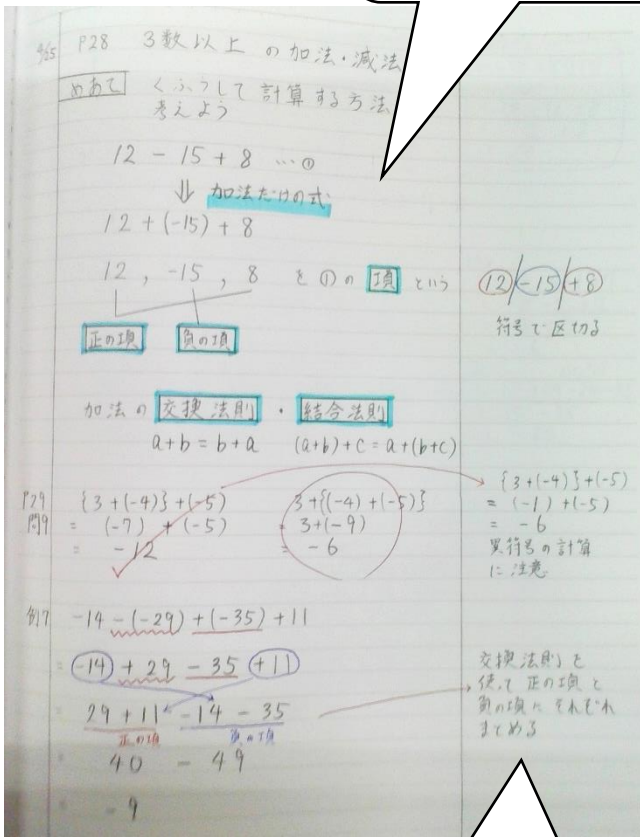 4/25 P28 3数以上の加法・減法
めあて くふうして計算する方法
考えよう
12 - 15 + 8 …①
⇓ 加法だけの式
12 + (-15) + 8
12 , -15 , 8 を①の項という
正の項 負の項
12/-15/+8
符号で区切る
加法の交換法則・結合法則
a+b = b+a (a+b)+c = a+(b+c)
P29
問9
{3+(-4)}+(-5)
= (-7) + (-5)
= -12
3+{(-4)+(-5)}
= 3+(-9)
= -6
{3+(-4)}+(-5)
= (-1)+(-5)
= -6
異符号の計算
に注意
例7 -14-(-29)+(-35)+11
= -14 + 29 - 35 +11
= 29 + 11 -14 - 35
正の項 負の項
= 40 - 49
= -9
交換法則を
使って正の項と
負の項にそれぞれ
まとめる